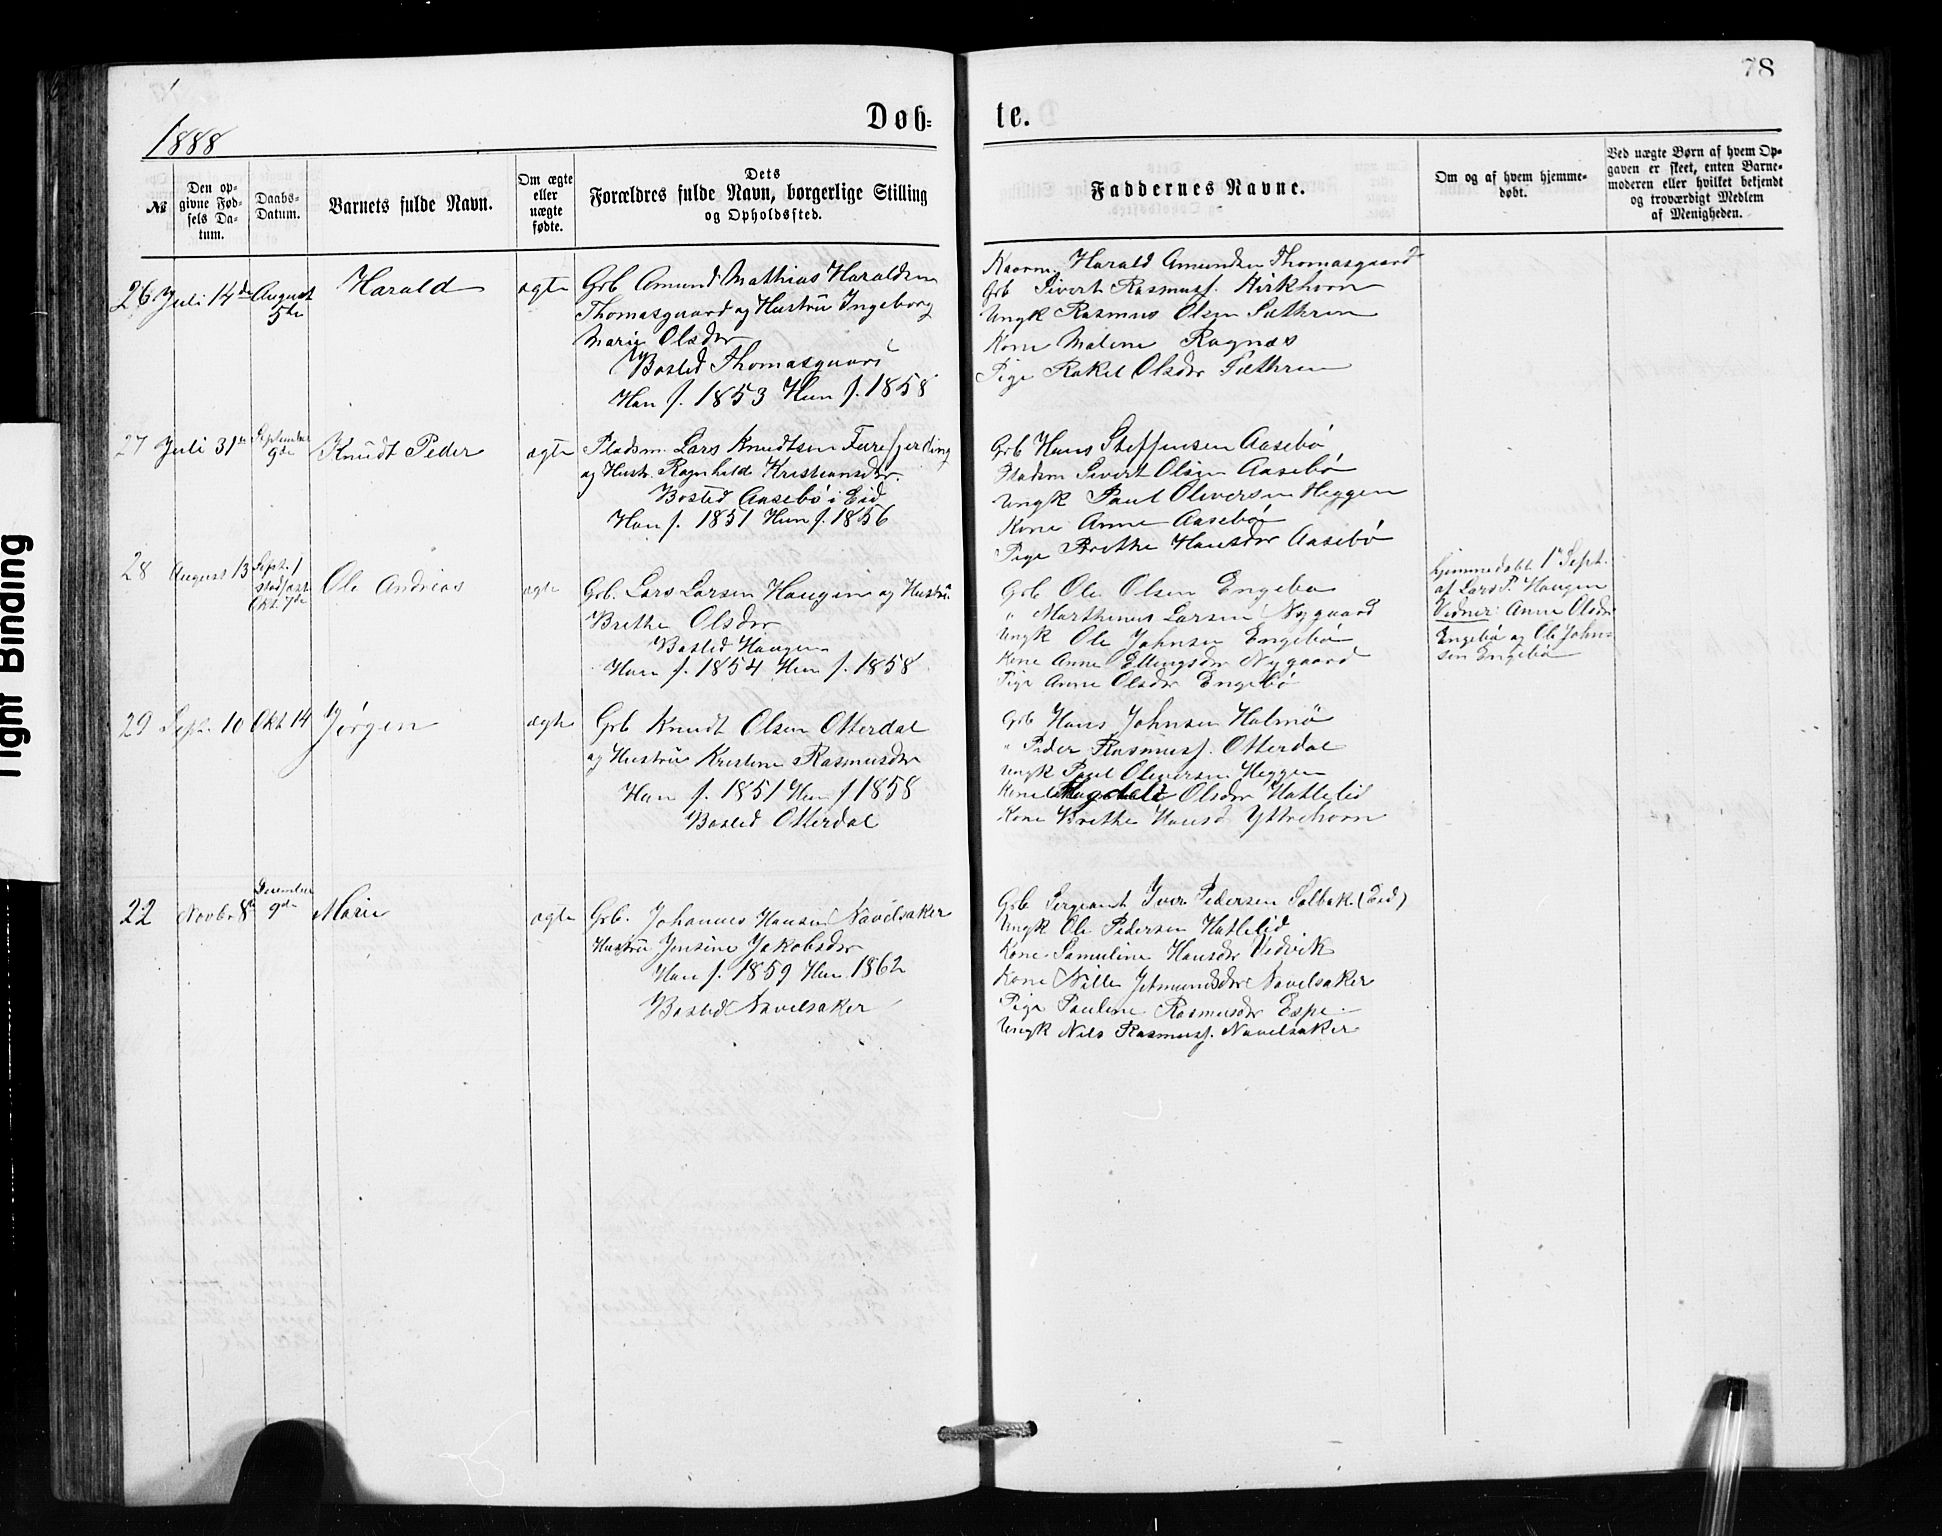 78
Døb-
te.
1888
№
Den op-
givne Fød-
sels Da-
tum.
Daabs-
Datum.
Barnets fulde Navn.
Om ægte
eller
uægte
fødte.
Dets
Forældres fulde Navn, borgerlige Stilling
og Opholdssted.
Faddernes Navne.
Om og af hvem hjemme-
døbt.
Ved uægte Børn af hvem Op-
gaven er skeet, enten Barne-
moderen eller hvilket bekjendt
og troværdigt Medlem
af Menigheden.
26 Juli 14de August
5te
Harald
ægte
Grb Amund Mathias Haraldsen
Thomasgaard og Hustru Ingeborg
Marie Olsdr
Bosted Thomasgaard
Han f. 1853 Hun f. 1858
Harald Amundsen Thomasgaard
Grb Sivert Rasmusf. Kirkhorn
Ungk Rasmus Olsen Sæthren
Kone Malene Rognæs
Pige Rakel Olsdr Sæthren
27 Juli 31te September
9de
Knudt Peder
ægte
Pladsm. Lars Knudtsen Færefjerding
og Hustr. Ragnhilde Kristiansdr.
Bosted Aasebø i Eid
Han f. 1851 Hun f. 1856
Grb Hans Steffensen Aasebø
Pladsm Sivert Olsen Aasebø
Ungk Paul Oliversen Heggen
Kone Anne Aasebø
Pige Brethe Hansdr Aasebø
28 August 13 Sept. 1
stadfæst
Okt. 7de
Ole Andreas
ægte
Grb. Lars Larsen Haugen og Hustru
Brethe Olsdr
Bosted Haugen
Han f. 1854 Hun f. 1858
Grb Ole Olsen Engebø
" Marthinus Larsen Nygaard
Ungk Ole Johnsen Engebø
Kone Anne Ellingsdr Nygaard
Pige Anne Olsdr Engebø
hjemmedøbt 1 Sept.
af Lars P. Haugen
Vidner: Anne Olsdr
Engebø og Ole John-
sen Engebø
29 Sept. 10 Okt 14
Jørgen
ægte
Grb Knudt Olsen Otterdal
og Hustru Kristine Rasmusdr
Han f. 1851 Hun f 1858
Bosted Otterdal
Grb Hans Johnsen Holmø
" Peder Rasmusf. Otterdal
Ungk Paul Oliversen Heggen
Kone Olsdr Hatlelid
Kone Brethe Hansd Yttrehorn
22 Novbr 8de December
9de
Marie
ægte
Grb. Johannes Hansen Navelsaker
Hustru Jensine Jakobsdr
Han f. 1859 Hun 1862
Bosted Navelsaker
Grb Sergeant Iver Pedersen Solbak (Eid)
Ungk Ole Pedersen Hatlelid
Kone Samuline Hansdr Vedvik
Kone Nille Jetmundsdr Navelsaker
Pige Pauline Rasmusdr Espe
Ungk Nils Rasmusf. Navelsaker
Tight Binding